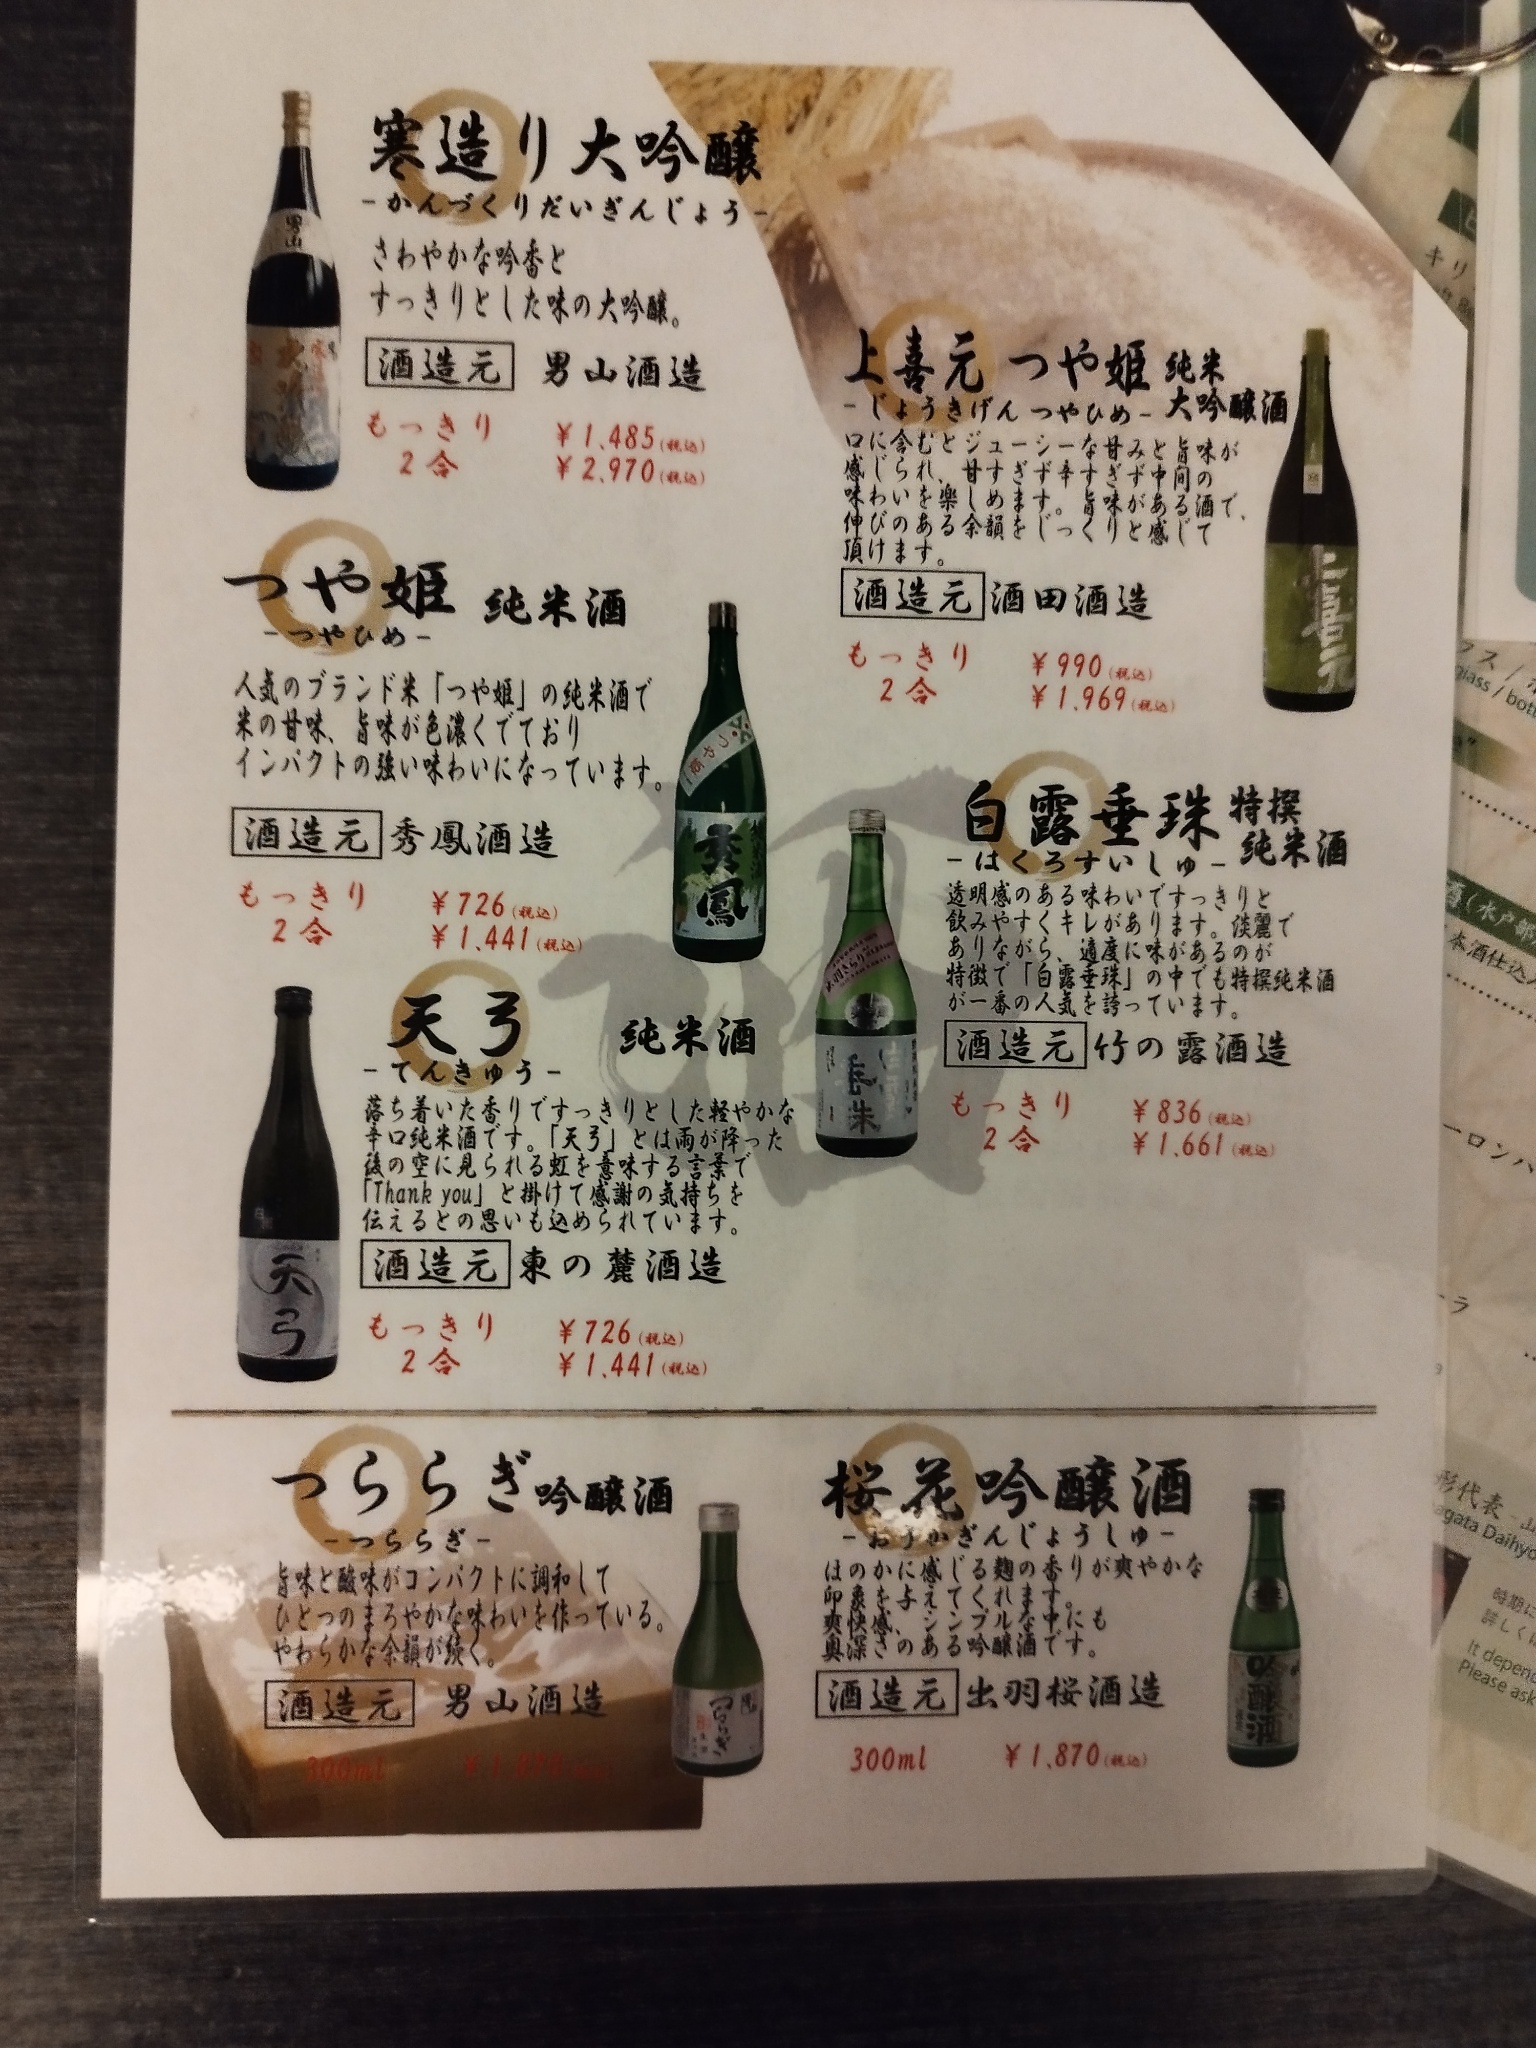 寒造り大吟醸
-かんづくりだいぎんじょう-
さわやかな吟香と
すっきりとした味の大吟醸。
酒造元 男山酒造
もっきり ￥1,485(税込)
2合 ￥2,970(税込)
男山
つや姫 純米酒
-つやひめ-
人気のブランド米「つや姫」の純米酒で
米の甘味、旨味が色濃くでており
インパクトの強い味わいになっています。
酒造元 秀鳳酒造
もっきり ￥726(税込)
2合 ￥1,441(税込)
つや姫
秀鳳
天弓 純米酒
-てんきゅう-
落ち着いた香りですっきりとした軽やかな
辛口純米酒です。「天弓」とは雨が降った
後の空に見られる虹を意味する言葉で
「Thank you」と掛けて感謝の気持ちを
伝えるとの思いも込められています。
酒造元 東の麓酒造
もっきり ￥726(税込)
2合 ￥1,441(税込)
天弓
上喜元 つや姫 純米
大吟醸酒
-じょうきげん つやひめ-
口に含むとジューシーな甘みと旨味が
感じられ、甘すぎず辛すぎず中間の
味わいを楽しめます。旨味がある酒で、
伸びのある余韻をじっくりと感じて
頂けます。
酒造元 酒田酒造
もっきり ￥990(税込)
2合 ￥1,969(税込)
上喜元
白露垂珠 特撰
純米酒
-はくろすいしゅ-
透明感のある味わいですっきりと
飲みやすくキレがあります。淡麗で
ありながら、適度に味があるのが
特徴で「白露垂珠」の中でも特撰純米酒
が一番の人気を誇っています。
酒造元 竹の露酒造
もっきり ￥836(税込)
2合 ￥1,661(税込)
つららぎ 吟醸酒
-つららぎ-
旨味と酸味がコンパクトに調和して
ひとつのまろやかな味わいを作っている。
やわらかな余韻が続く。
酒造元 男山酒造
300ml
桜花吟醸酒
-おうかぎんじょうしゅ-
ほのかに感じる麹の香りが爽やかな
印象を与えてくれます。
爽快感、シンプルな中にも
奥深さのある吟醸酒です。
酒造元 出羽桜酒造
300ml ￥1,870(税込)
吟醸酒
キリ
glass / bott
(水戸部
本酒仕込
ーロンハ
ーラ
形代表 - 山
agata Daihyo
時期に
詳しくは
It depen
Please ask